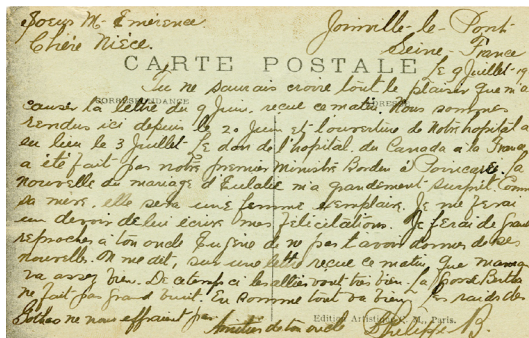 Soeur M- Émérence
Joinville-le-Pont
Chère Nièce.
Seine,- France
CARTE POSTALE
Le 9 Juillet-19
Tu ne saurais croire tout le plaisir que m'a
CORRESPONDANCE
causer ta lettre du 9 Juin, reçue ce matin. Nous sommes
rendus ici depuis le 20 Juin et l'ouverture de notre hôpital a
eu lieu le 3 Juillet. Le don de l'hopital du Canada à la France
a été fait par notre premier Ministre Borden à Poincaré. La
nouvelle du mariage d'Eulalie m'a grandement surpris. Comme
sa mère, elle sera une femme exemplaire. Je me ferai
un devoir de lui écrire mes félicitations. Je ferai de grands
reproches à ton oncle Eugène de ne pas t'avoir donner de ses
nouvelle. On me dit, sur une lettre reçue ce matin, que maman
va assez bien. De ce temps ci les alliés vont très bien. La Grosse Bertha
ne fait pas grand bruit. En somme tout va bien. Les raids des
Gothas ne nous effraient pas.
Amitiés de ton oncle
Philippe B.
Edition Artistique M., Paris.